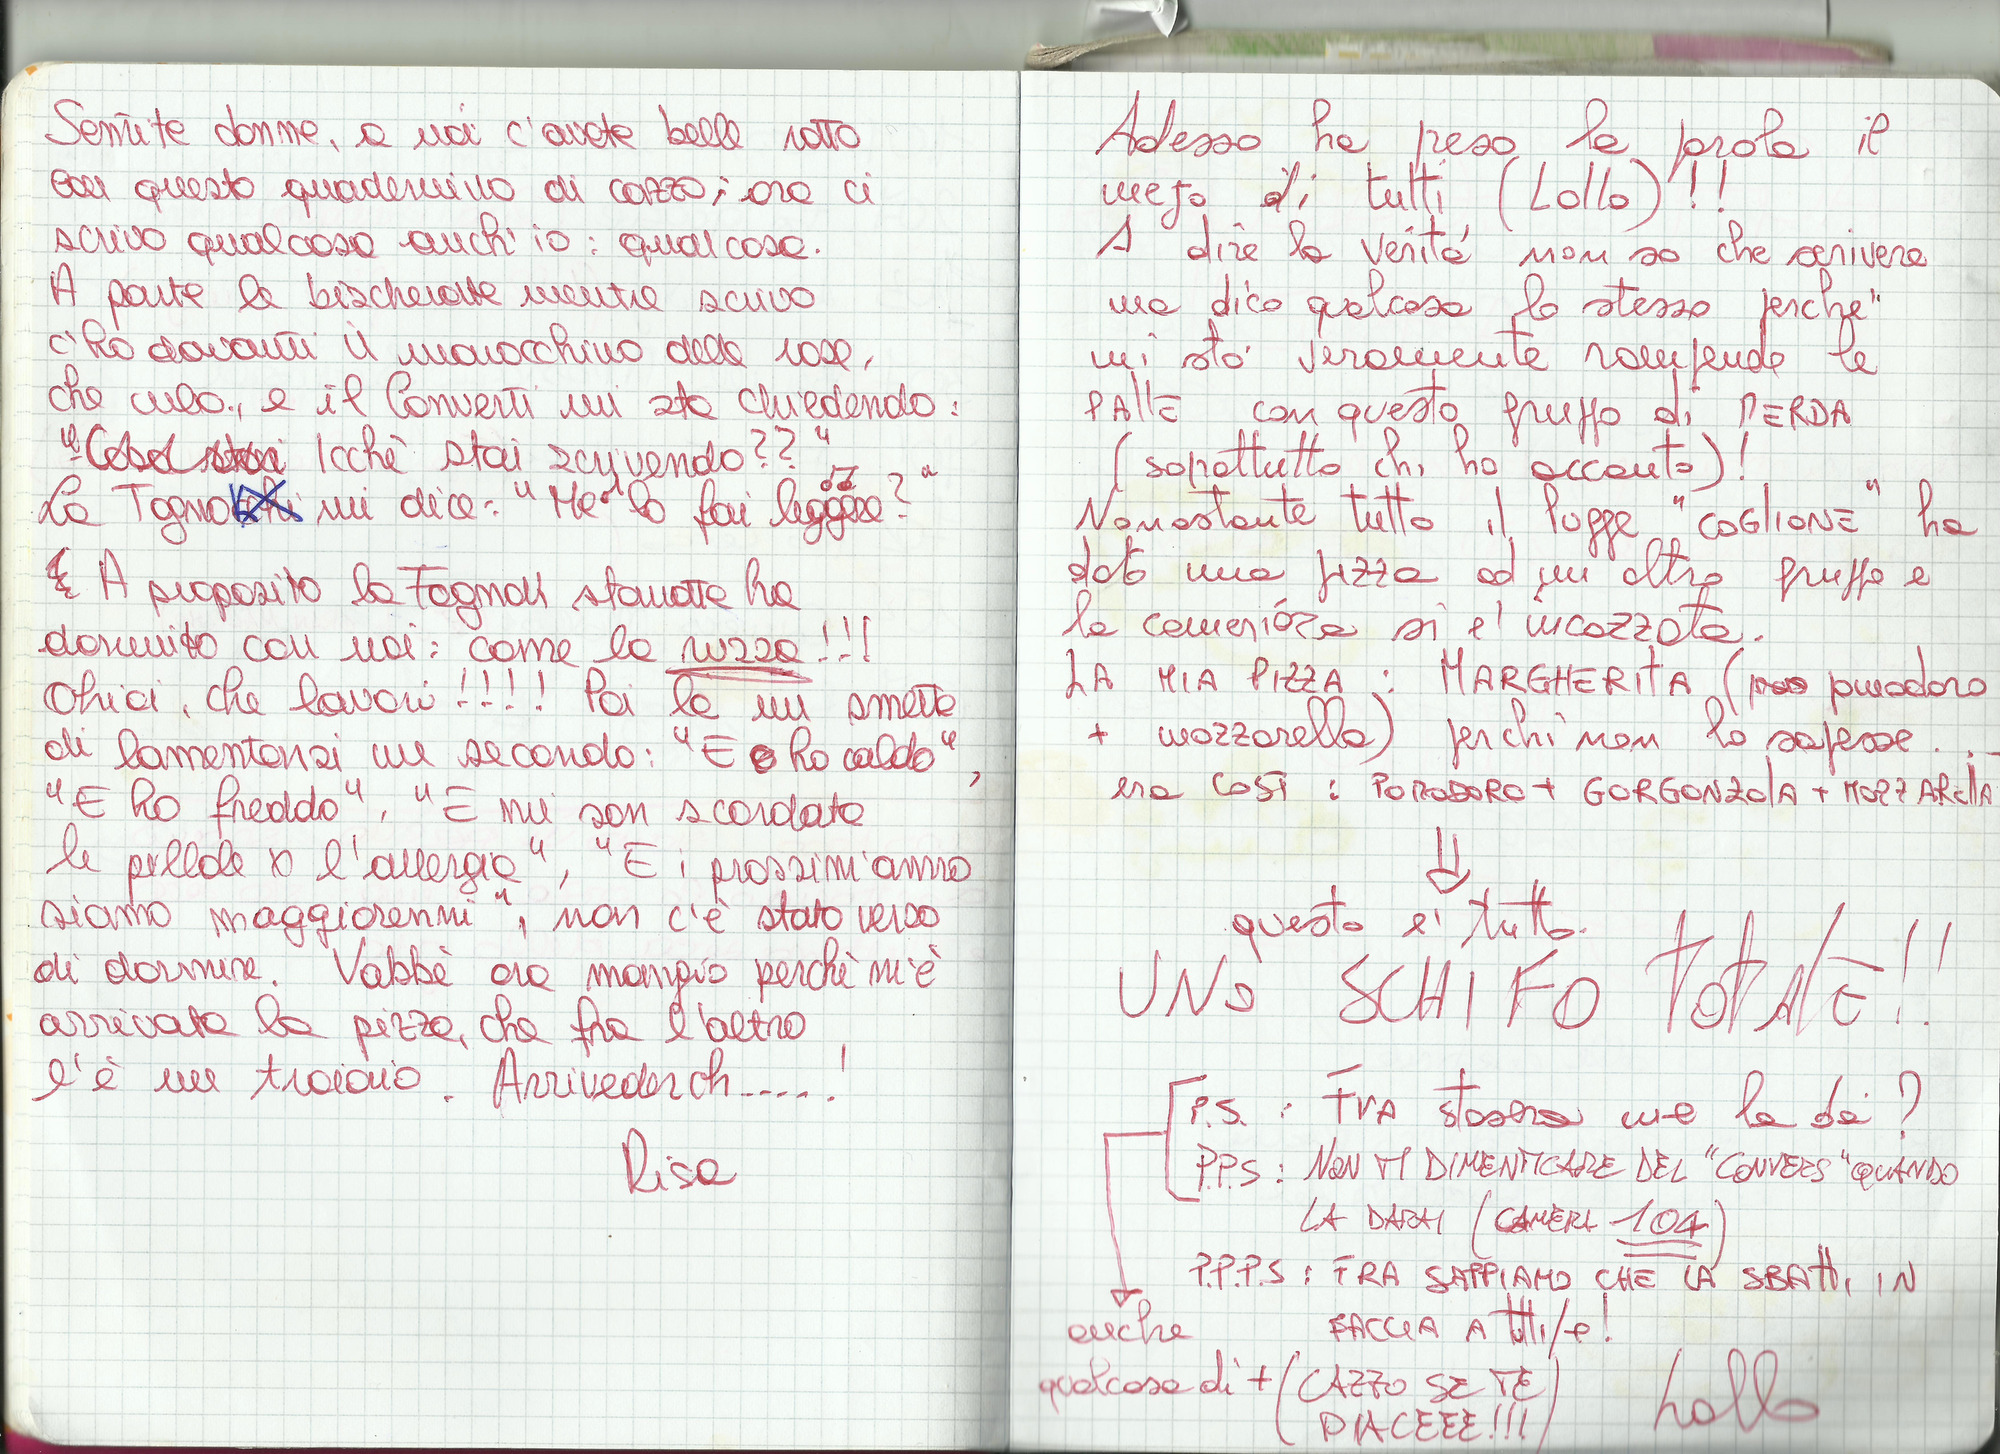 Sentite donne, a noi c'avete belle rotto
con questo quadernino di cazzo; ora ci
scrivo qualcosa anch'io: qualcosa.
A parte le bischerate mentre scrivo
c'ho davanti il marocchino delle rose,
che culo., e il Converti mi sta chiedendo:
"Icchè stai scrivendo??"
La Togno mi dice: "Me lo fai leggere?"
A proposito la Tognoli stanotte ha
dormito con noi: come la ruzza!!!
Ohici, che lavori!!!! Poi la un smette
di lamentarsi un secondo: "E ho caldo",
"E ho freddo", "E mi son scordata
le pillole x l'allergia", "E i prossimi anno
siamo maggiorenni", non c'è stato verso
di dormire. Vabbè ora mangio perchè m'è
arrivata la pizza, che fra l'altro
l'è un troiaio. Arrivederch....!
Risa
Adesso ha preso la prola il
mejo di tutti (Lollo)!!
A dire la verità non so che scrivere
ma dico qualcosa lo stesso perche"
mi sto' veramente rompendo le
PAllE con questo gruppo di MERDA
(soprattutto chi ho accanto)!
Nonostante tutto il Pugge "COGLIONE" ha
dato una pizza ad un altro gruppo e
la cameriera si e' incazzata.
LA MIA PIZZA: MARGHERITA (pomodoro
+ mozzarella) perchi non lo sapesse...
era COSI: POMODORO + GORGONZOlA + MOZZAREllA
questo e' tutto.
UNO SCHIFO TOTALE!!
P.S.: FRA stasera me la dai?
P.P.S: NON TI DIMENTICARE DEL "CONVERS" QUANDO
LA DARAI (CAMERA 104)
P.P.P.S: FRA SAPPIAMO CHE LA SBATTI IN
FACCIA A TUTTI/e!
anche
qualcosa di + (CAZZO SE TE
PIACEEE!!!)
Lollo